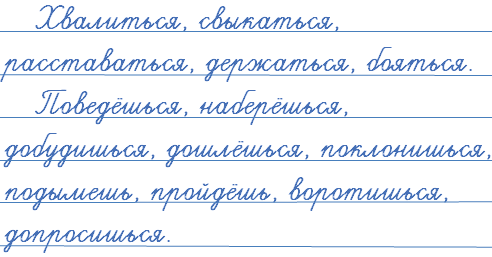 Хвалиться, свыкаться,
расставаться, держаться, бояться.
Поведёшься, наберёшься,
добудишься, дошлёшься, поклонишься,
подымешь, пройдёшь, воротишься,
допросишься.